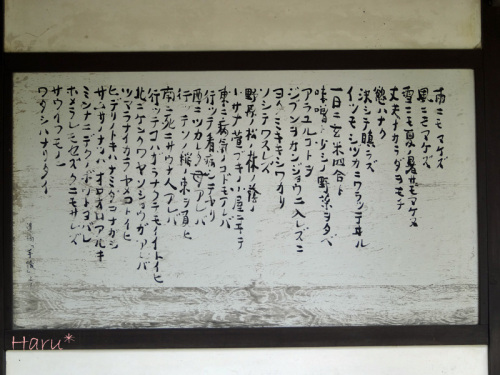 雨ニモマケズ
風ニモマケズ
雪ニモ夏ノ暑サニモマケヌ
丈夫ナカラダヲモチ
慾ハナク
決シテ瞋ラズ
イツモシヅカニワラッテヰル
一日ニ玄米四合ト
味噌ト少シノ野菜ヲタベ
アラユルコトヲ
ジブンヲカンジョウニ入レズニ
ヨクミキキシワカリ
ソシテワスレズ
野原ノ松ノ林ノ蔭ノ
小サナ萱ブキノ小屋ニヰテ
東ニ病気ノコドモアレバ
行ッテ看病シテヤリ
西ニツカレタ母アレバ
行ッテソノ稲ノ束ヲ負ヒ
南ニ死ニサウナ人アレバ
行ッテコハガラナクテモイイトイヒ
北ニケンクヮヤソショウガアレバ
ツマラナイカラヤメロトイヒ
ヒデリノトキハナミダヲナガシ
サムサノナツハオロオロアルキ
ミンナニデクノボートヨバレ
ホメラレモセズ クニモサレズ
サウイフモノニ
ワタシハナリタイ
Haru*